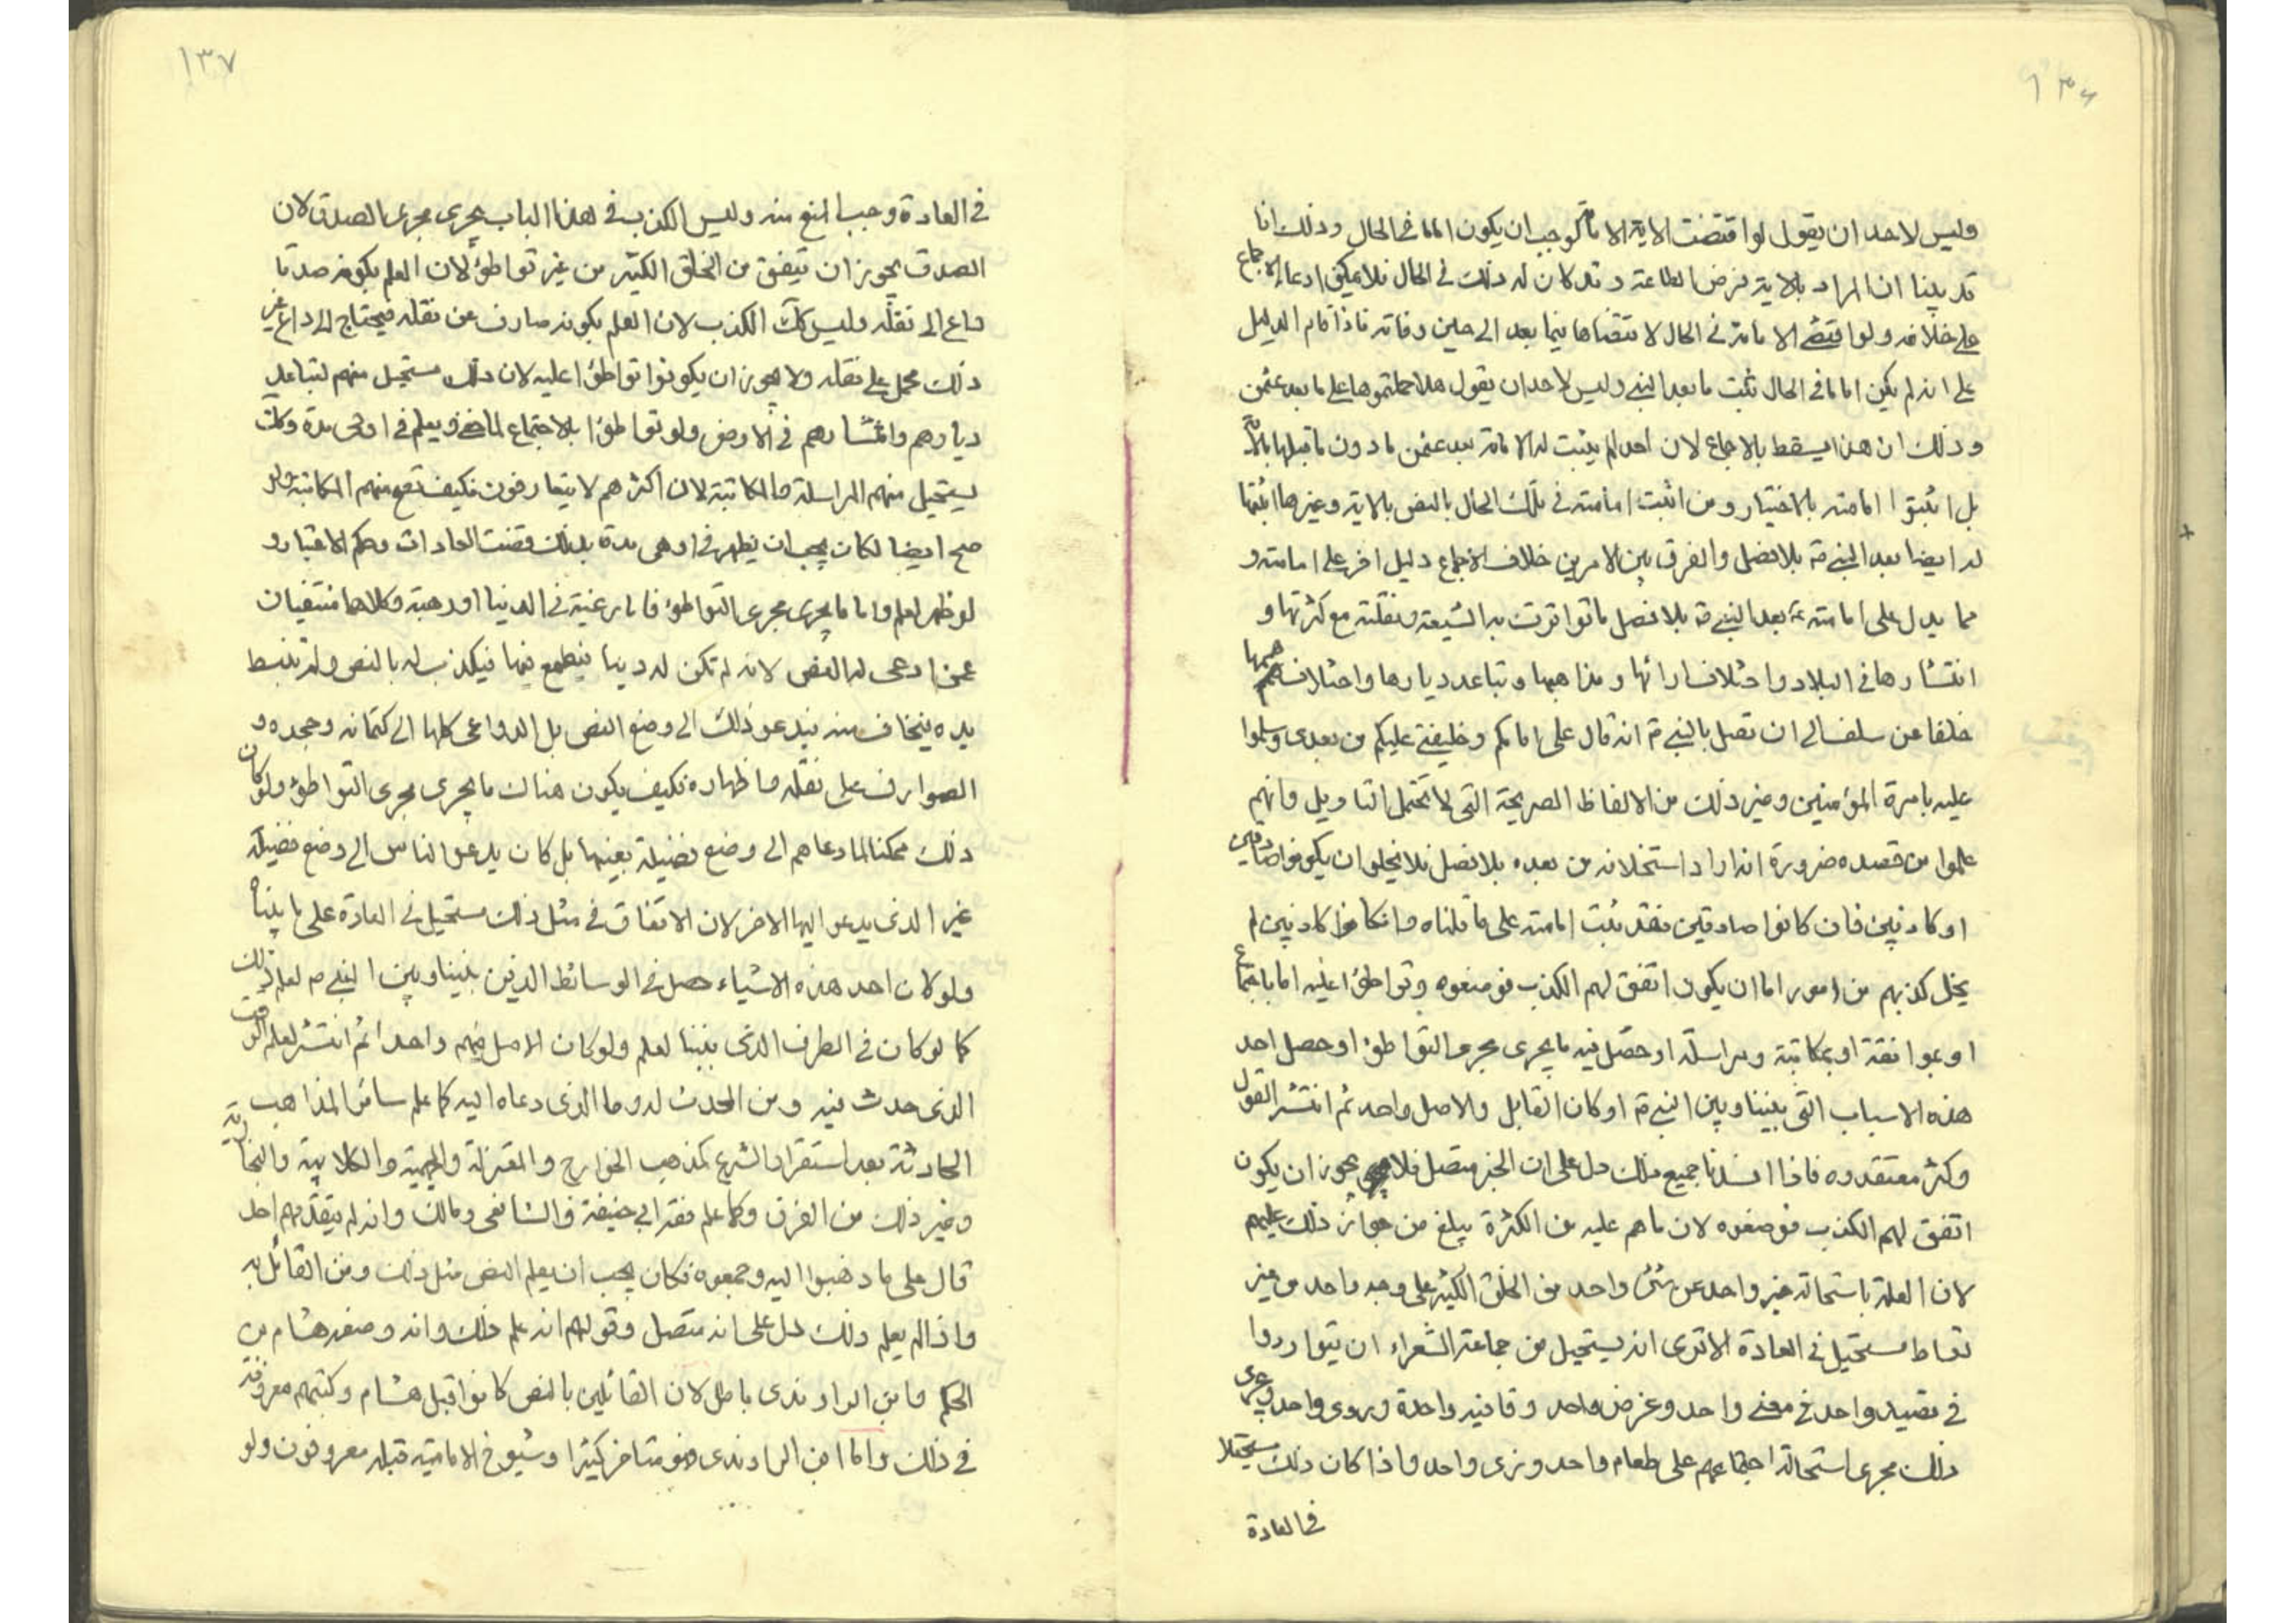 ١٣٦
وليس لاحد ان يقول لو اقتضت الاية الامامة لوجب ان يكون اماما فى الحال وذلك انا
قد بينا ان المراد بالاية فرض الطاعة وقد كان له ذلك فى الحال فلا يمكن ادعاء الاجماع
على خلافه ولو اقتضى الامامة فى الحال لاقتضاها فيما بعد الى حين وفاته فاذا قام الدليل
على انه لم يكن اماما فى الحال ثبت ما بعد النبى وليس لاحد ان يقول هلا حملتموها على ما بعد عثمن
وذلك ان هذا يسقط بالاجماع لان احدا لم يثبت له الامامة بعد عثمن ما دون ما قبلها بالاية
بل اثبتوا امامته بالاختيار ومن اثبت امامته فى تلك الحال بالنص بالاية وغيرها اثبتها
له ايضا بعد النبى ص بلا فصل والفرق بين الامرين خلاف الاجماع دليل اخر على امامته و
مما يدل على امامته ع بعد النبى ص بلا فصل ما تواترت به الشيعة ونقلته مع كثرتها و
انتشارها فى البلاد واختلاف ارائها ومذاهبها وتباعد ديارها واختلاف هممها
خلفا عن سلف الى ان تصل بالنبى ص انه قال على امامكم وخليفتى عليكم من بعدى وسلموا
عليه بامرة المؤمنين وغير ذلك من الالفاظ الصريحة التى لا تحتمل التاويل وانهم
علموا من قصده ضرورة انه اراد استخلافه من بعده بلا فصل فلا يخلو ان يكونوا صادقين
او كاذبين فان كانوا صادقين فقد ثبت امامته على ما قلناه وان كانوا كاذبين لم
يخل كذبهم من امور اما ان يكون اتفق لهم الكذب فوضعوه وتواطؤا عليه اما باجتماع
او بموافقة او بمكاتبة ومراسلة او حصل فيه ما يجرى مجرى التواطؤ او حصل احد
هذه الاسباب التى بيننا وبين النبى ص او كان القايل والاصل واحد ثم انتشر القول
وكثر معتقدوه فاذا افسدنا جميع ذلك دل على ان الخبر متصل فلا يجوز ان يكون
اتفق لهم الكذب فوضعوه لان ما هم عليه من الكثرة يبلغ من جواز ذلك عليهم
لان العلم باستحالة خبر واحد عن شئ واحد من الخلق الكثير على وجه واحد من غير
تواط مستحيل فى العادة الا ترى انه يستحيل من جماعة الشعراء ان يتواردوا
فى قصيدة واحد فى معنى واحد وغرض واحد وقافيه واحدة وروى واحد ويجرى
ذلك مجرى استحالة اجتماعهم على طعام واحد وزى واحد واذا كان ذلك مستحيلا
فى العادة
١٣٧
فى العادة وجب المنع منه وليس الكذب فى هذا الباب يجرى مجرى الصدق لان
الصدق يجوز ان يتفق من الخلق الكثير من غير تواطؤ لان العلم بكونه صدقا
داع الى نقله وليس كك الكذب لان العلم بكونه صارف عن نقله فيحتاج الى داع غير
ذلك يحمل على نقله ولا يجوز ان يكونوا تواطؤا عليه لان ذلك مستحيل منهم لتباعد
ديارهم وانتشارهم فى الارض ولو تواطؤا بالاجتماع لما خفى ويعلم فى اوحى مدة وكك
يستحيل منهم المراسلة والمكاتبة لان اكثرهم لا يتعارفون فكيف تقع منهم المكاتبة ولو
صح ايضا لكان يجب ان يظهر فى اوحى مدة بذلك قضت العادات وحكم الاعتبار و
لو ظهر لعلم واما ما يجرى مجرى التواطؤ فاما رغبة فى الدنيا او رهبة وكلاهما منتفيان
عمن ادعى له النص لانه لم تكن له دنيا فيطمع فيها فيكذب له بالنص ولم تنبسط
يده فيخاف منه فيدعو ذلك الى وضع النص بل الدواعى كلها الى كتمانه وجحده و
الصوارف على نقله واظهاره فكيف يكون هناك ما يجرى مجرى التواطؤ ولو كان
ذلك ممكنا لما دعاهم الى وضع فضيلة بعينها بل كان يدعو الناس الى وضع فضيلة
غير الذى يدعو اليها الاخر لان الاتفاق فى مثل ذلك مستحيل فى العادة على ما بيناه
ولو كان احد هذه الاشياء حصل فى الوسائط الذين بيننا وبين النبى ص لعلم ذلك
كما لو كان فى الطرف الذى بيننا لعلم ولو كان الاصل فيهم واحدا ثم انتشر لعلم الوقت
الذى حدث فيه ومن المحدث له وما الذى دعاه اليه كما علم سائر المذاهب
الحادثة بعد استقرار الشرع كمذهب الخوارج والمعتزلة والجهمية والكلابية والنجارية
وغير ذلك من الفرق وكما علم فقه ابى حنيفة والشافعى ومالك وانه لم يتقدمهم احد
قال على ما ذهبوا اليه وجمعوه فكان يجب ان يعلم النص مثل ذلك ومن القائل به
واذا لم يعلم ذلك دل على انه متصل وقولهم انه علم ذلك وانه وضعه هشام بن
الحكم وابن الراوندى باطل لان القائلين بالنص كانوا قبل هشام وكتبهم معروفة
فى ذلك واما ابن الراوندى فهو متاخر كثيرا وشيوخ الامامية قبله معروفون ولو